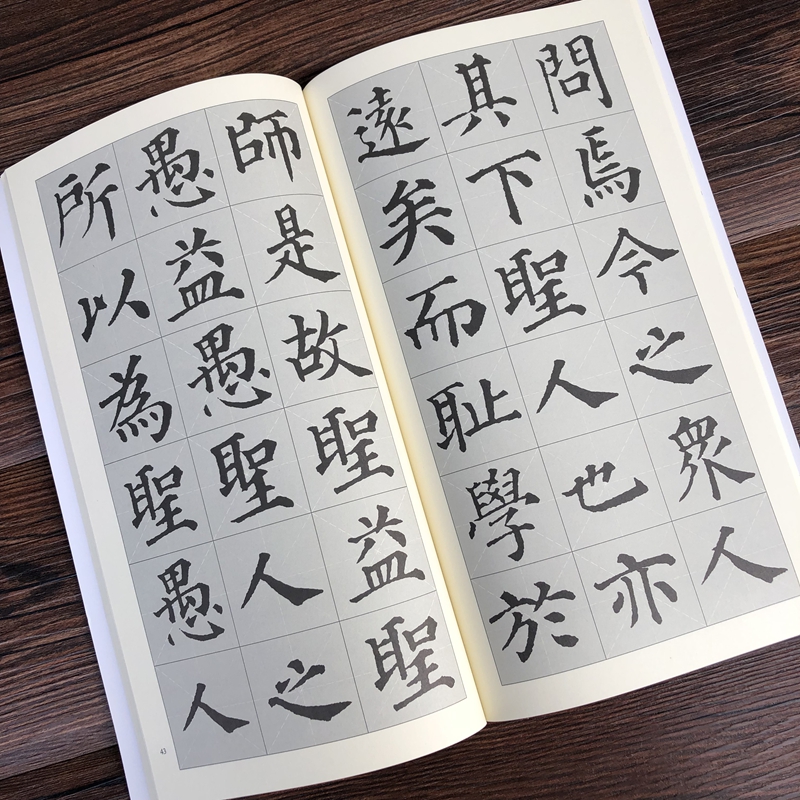 問焉今之衆人
其下聖人也亦
遠矣而耻學於
師是故聖益聖
愚益愚聖人之
所以為聖愚人
43